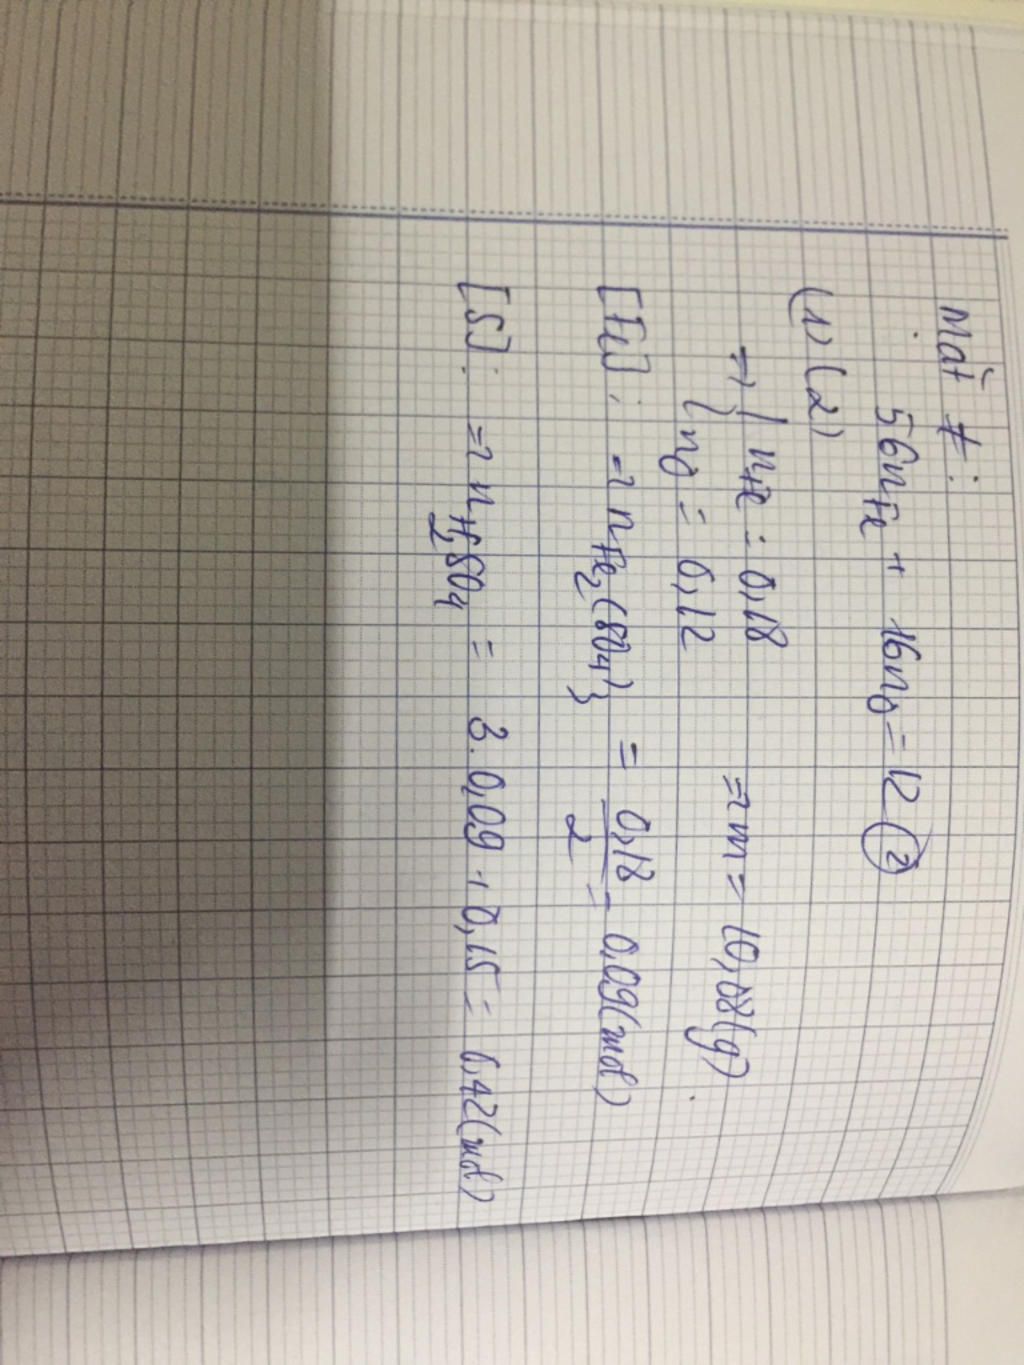 Mặt ≠ :
56nFe + 16nO = 12 (2)
(1) (2)
=> { nFe = 0,18
{ nO = 0,12 => m = 10,08(g)
[Fe] : => nFe2(SO4)3 = 0,18/2 = 0,09(mol)
[S] : => nH2SO4 = 3.0,09 + 0,15 = 0,42(mol)